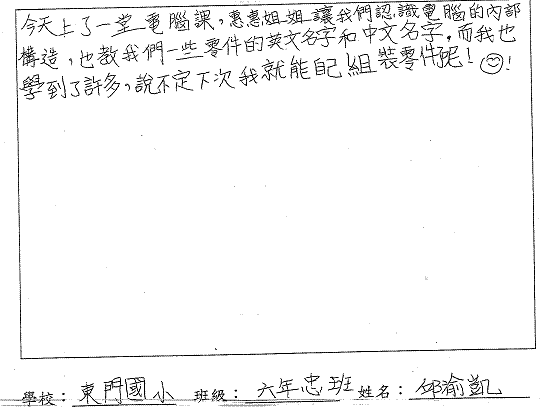 今天上了一堂電腦課，惠惠姐姐讓我們認識電腦的內部
構造，也教我們一些零件的英文名字和中文名字，而我也
學到了許多，說不定下次我就能自己組裝零件呢！☺！
學校：東門國小 班級：六年忠班 姓名：邱渝凱